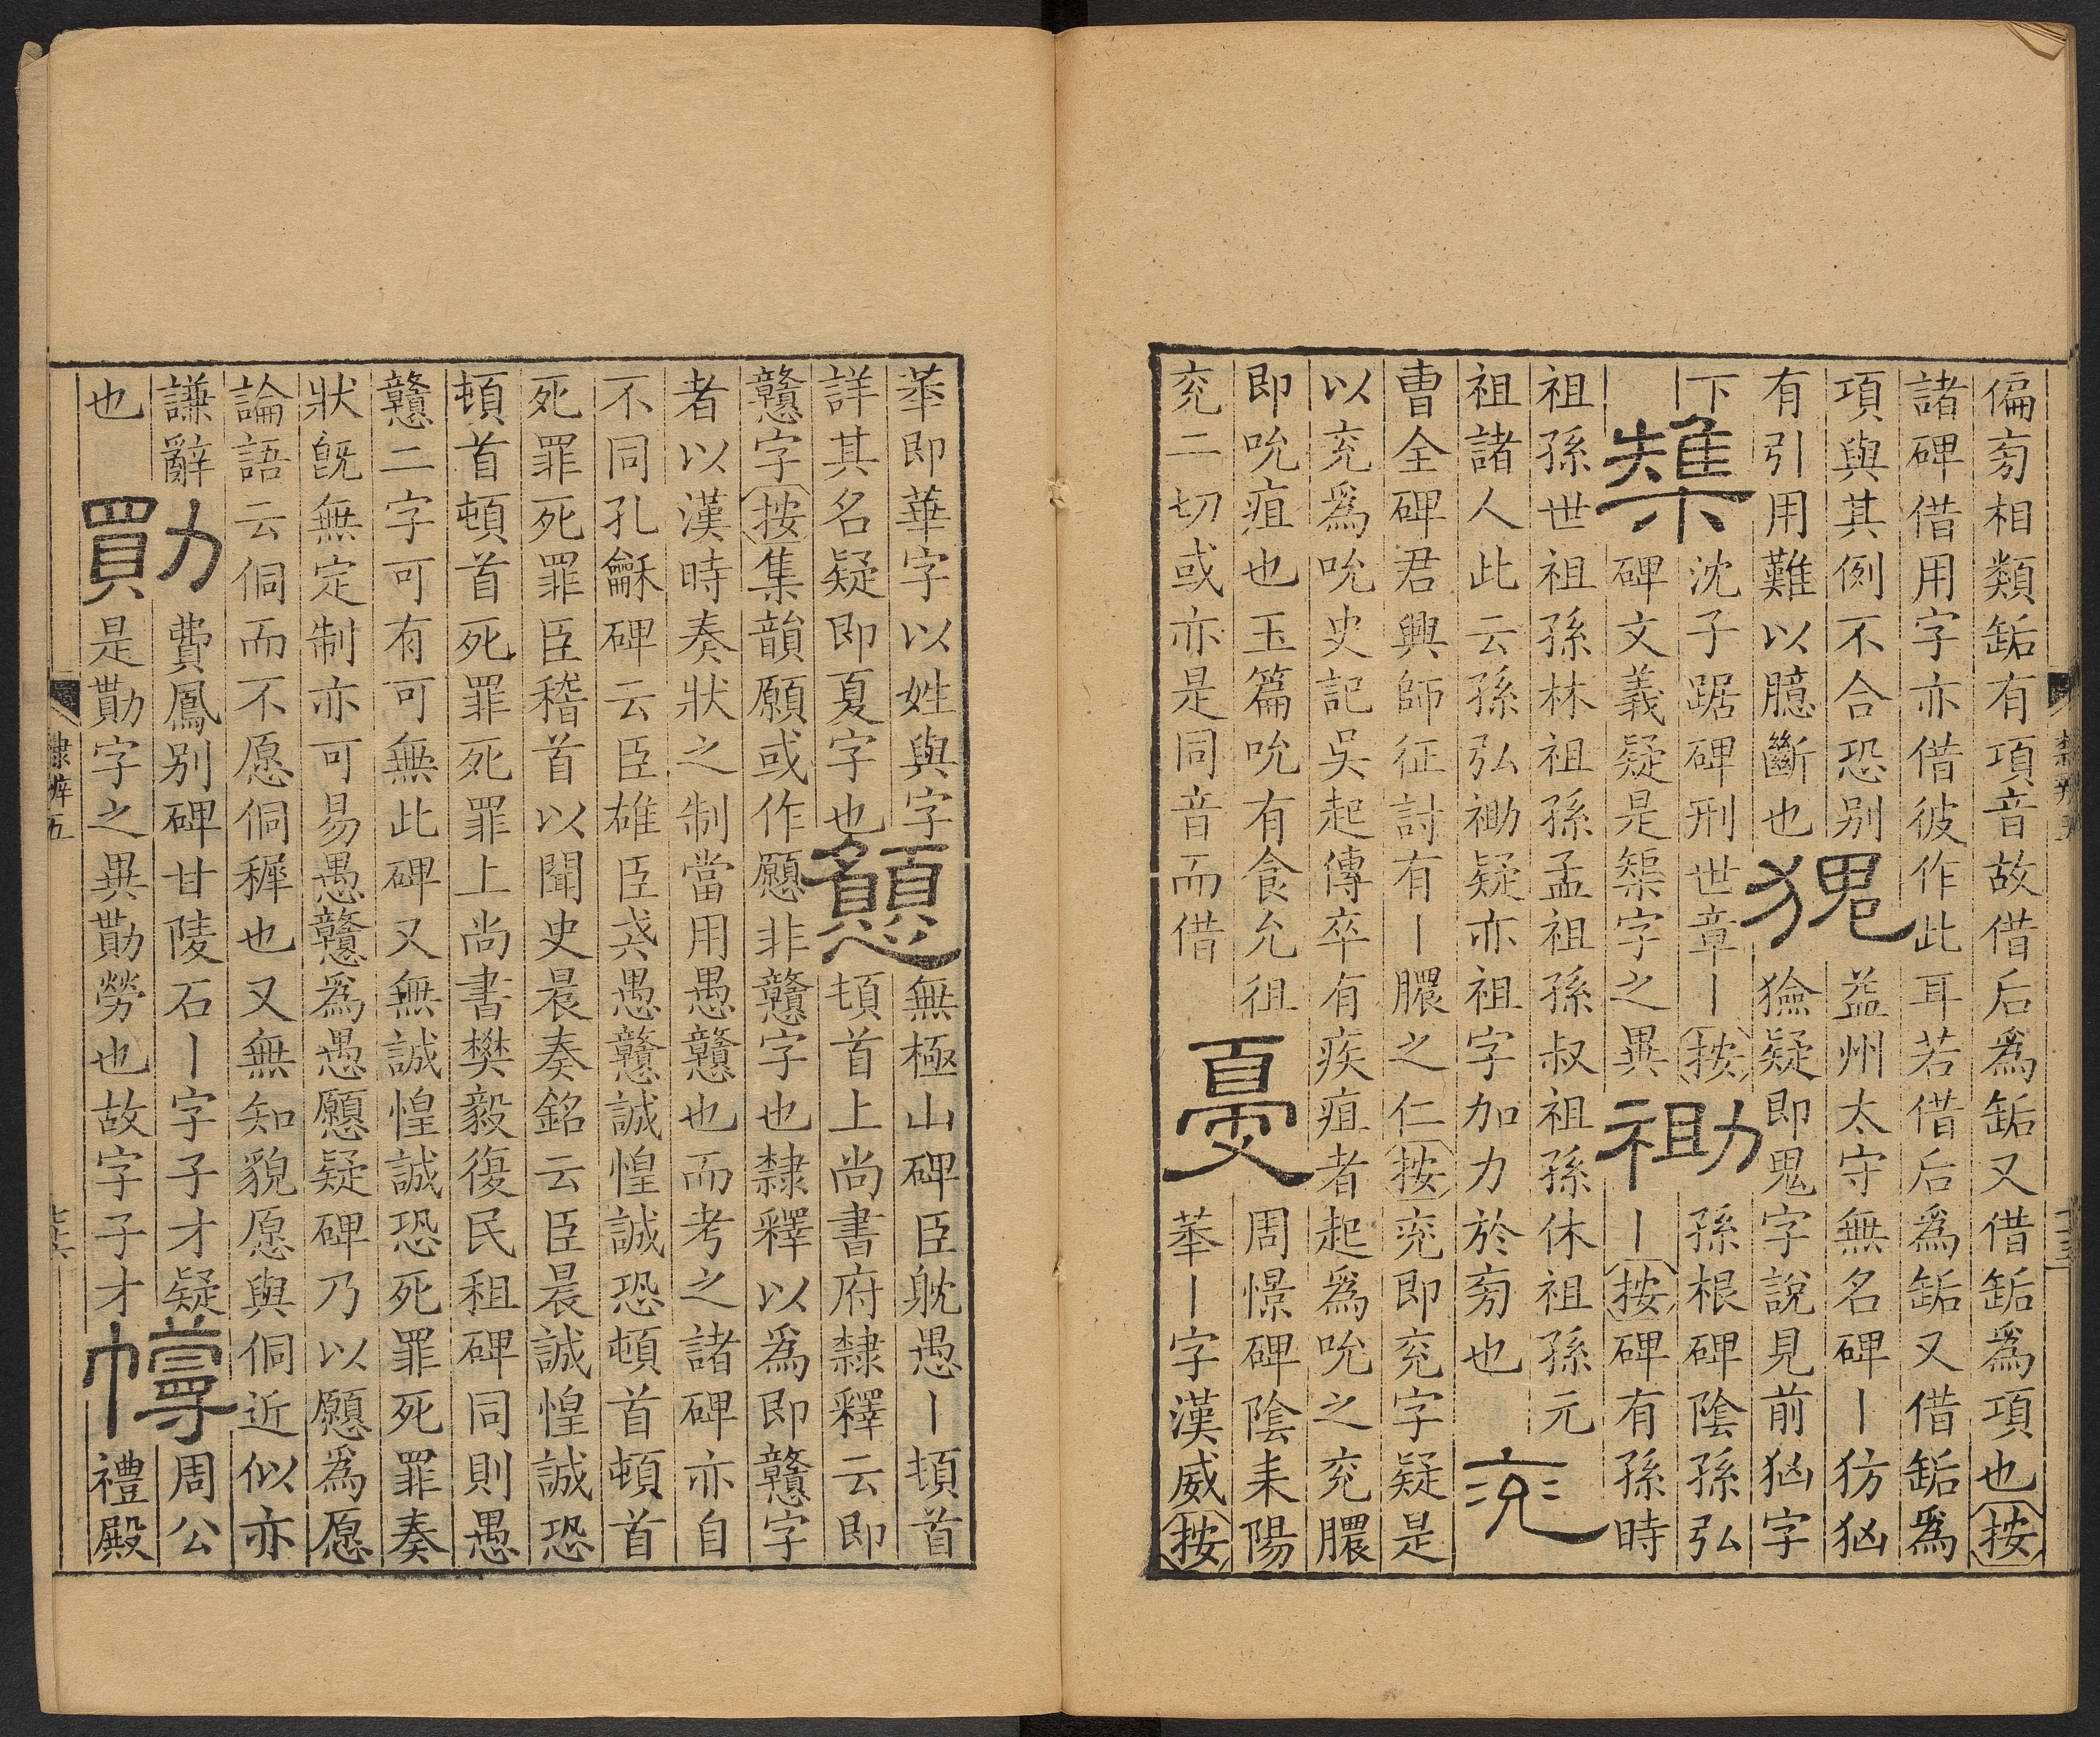 偏旁相類缿有項音故借后爲缿又借缿爲項也按
諸碑借用字亦借彼作此耳若借后爲缿又借缿爲
項與其例不合恐别
益州太守無名碑丨犲㐫
有引用難以臆斷也
獫疑即鬼字說見前㐫字
下
沈子踞碑刑世章丨按
碑文義疑是椝字之異
孫根碑陰孫弘
丨按碑有孫時
祖孫世祖孫林祖孫孟祖孫叔祖孫休祖孫元
祖諸人此云孫弘耡疑亦祖字加力於旁也
曹全碑君興師征討有丨膿之仁按兖即兖字疑是
以兖爲吮史記吳起傳卒有疾疽者起爲吮之兖膿
即吮疽也玉篇吮有食允徂
兖二切或亦是同音而借
戞
周憬碑陰耒陽
蕐丨字漢威按
蕐即華字以姓與字
詳其名疑即夏字也
無極山碑臣躭愚丨頓首
頓首上尚書府隸釋云即
戇字按集韻願或作愿非戇字也隸釋以爲即戇字
者以漢時奏狀之制當用愚戇也而考之諸碑亦自
不同孔龢碑云臣雄臣戒愚戇誠惶誠恐頓首頓首
死罪死罪臣稽首以聞史晨奏銘云臣晨誠惶誠恐
頓首頓首死罪死罪上尚書樊毅復民租碑同則愚
戇二字可有可無此碑又無誠惶誠恐死罪死罪奏
狀旣無定制亦可易愚戇爲愚願疑碑乃以願爲愿
論語云侗而不愿侗稺也又無知貌愿與侗近似亦
謙辭
也
勩
費鳳别碑甘陵石丨字子才疑
是勩字之異勩勞也故字子才
周公
禮殿
隸辨五